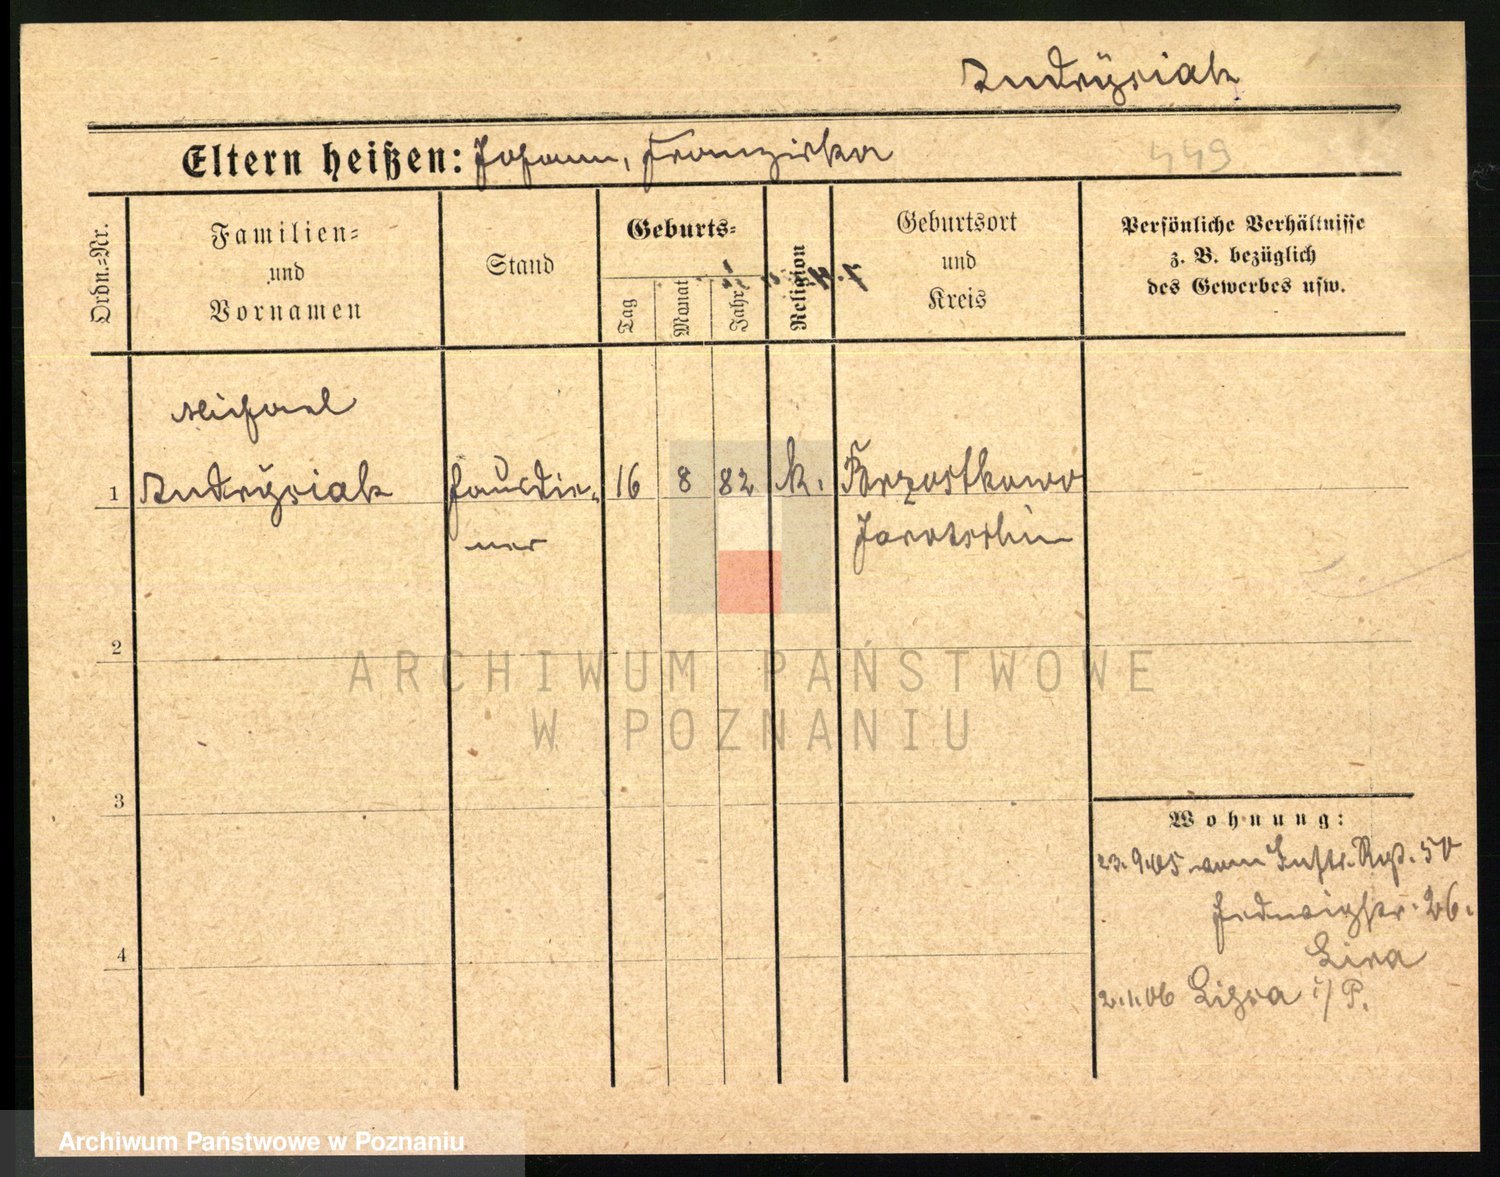 Andrÿsiak
Eltern heißen: Johann, Franziska
449
Ordn.-Nr.
Familien-
und
Vornamen
Stand
Geburts-
Tag
Monat
Jahr
Religion
Geburtsort
und
Kreis
Persönliche Verhältnisse
z. B. bezüglich
des Gewerbes usw.
Michael
1 Andrÿsiak Hausdie- 16 8 82 k. Brzostkowo
ner Jarotschin
2
ARCHIWUM PAŃSTWOWE
W POZNANIU
3
Wohnung:
23.9.05 vom Inftr. Rgt. 50
Hedwigstr. 26.
4
2.1.06 Lissa i/P.
Archiwum Państwowe w Poznaniu